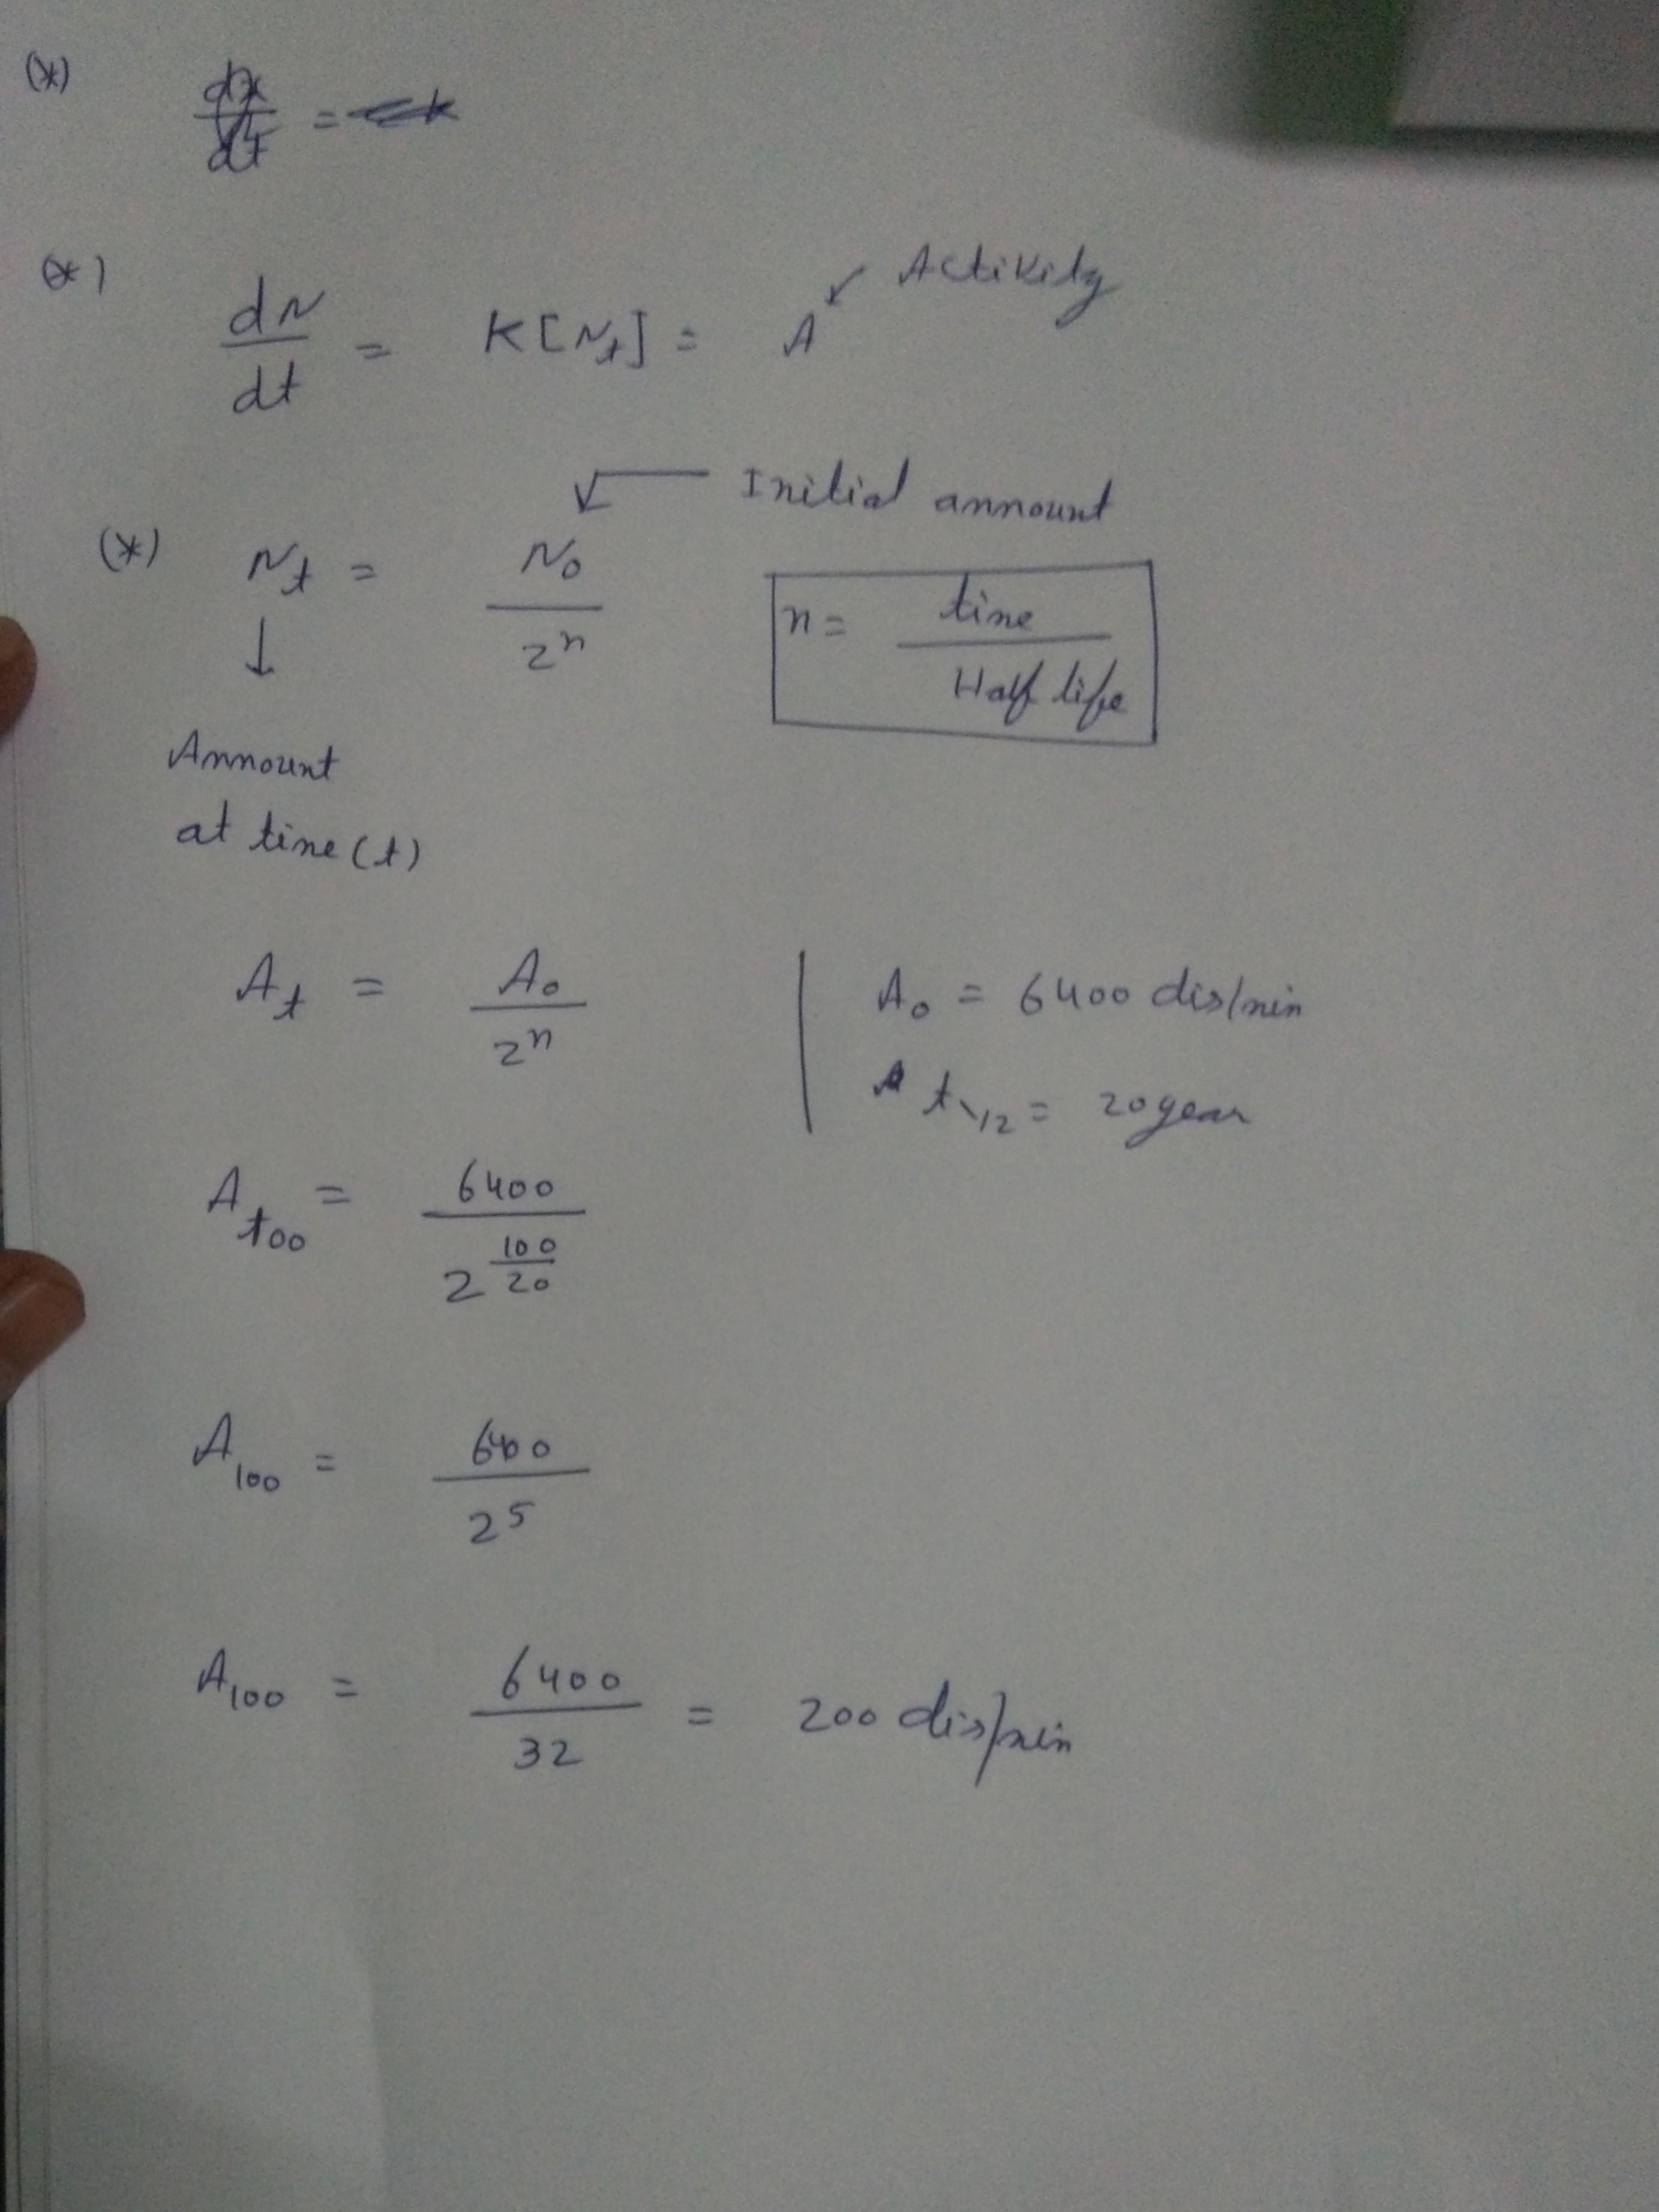 (*) dx/dt = k
(*) dN/dt = K[Nt] = A ↙ Activity
Initial annount
(*) Nt = N0/2^n
n = time/Half life
↓
Annount
at time (t)
At = A0/2^n | A0 = 6400 dis/min
t1/2 = 20 year
A100 = 6400/2^(100/20)
A100 = 6400/2^5
A100 = 6400/32 = 200 dis/min